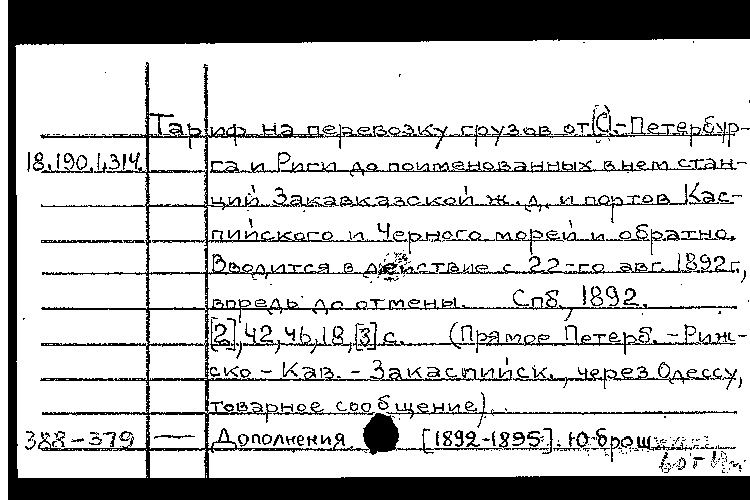 Тариф на перевозку грузов от С.-Петербур-
18.190.1.314. га и Риги до поименованных в нем стан-
ций Закавказской ж.д. и портов Кас-
пийского и Черного морей и обратно.
Вводится в действие с 22-го авг. 1892г.,
впредь до отмены. Спб., 1892.
[2],42,46,18,[3]с. (Прямое Петерб.-Риж-
ско-Кав.-Закаспийск., через Одессу,
товарное сообщение).
388-379 — Дополнения [1892-1895]. 10 брош